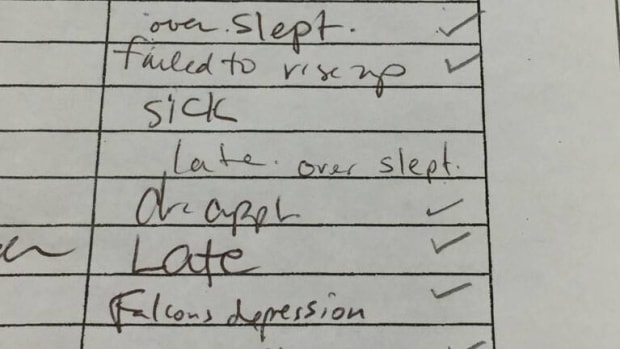 over slept.
failed to rise up
SICK
Late. over slept.
dr appt
Late
Falcons depression